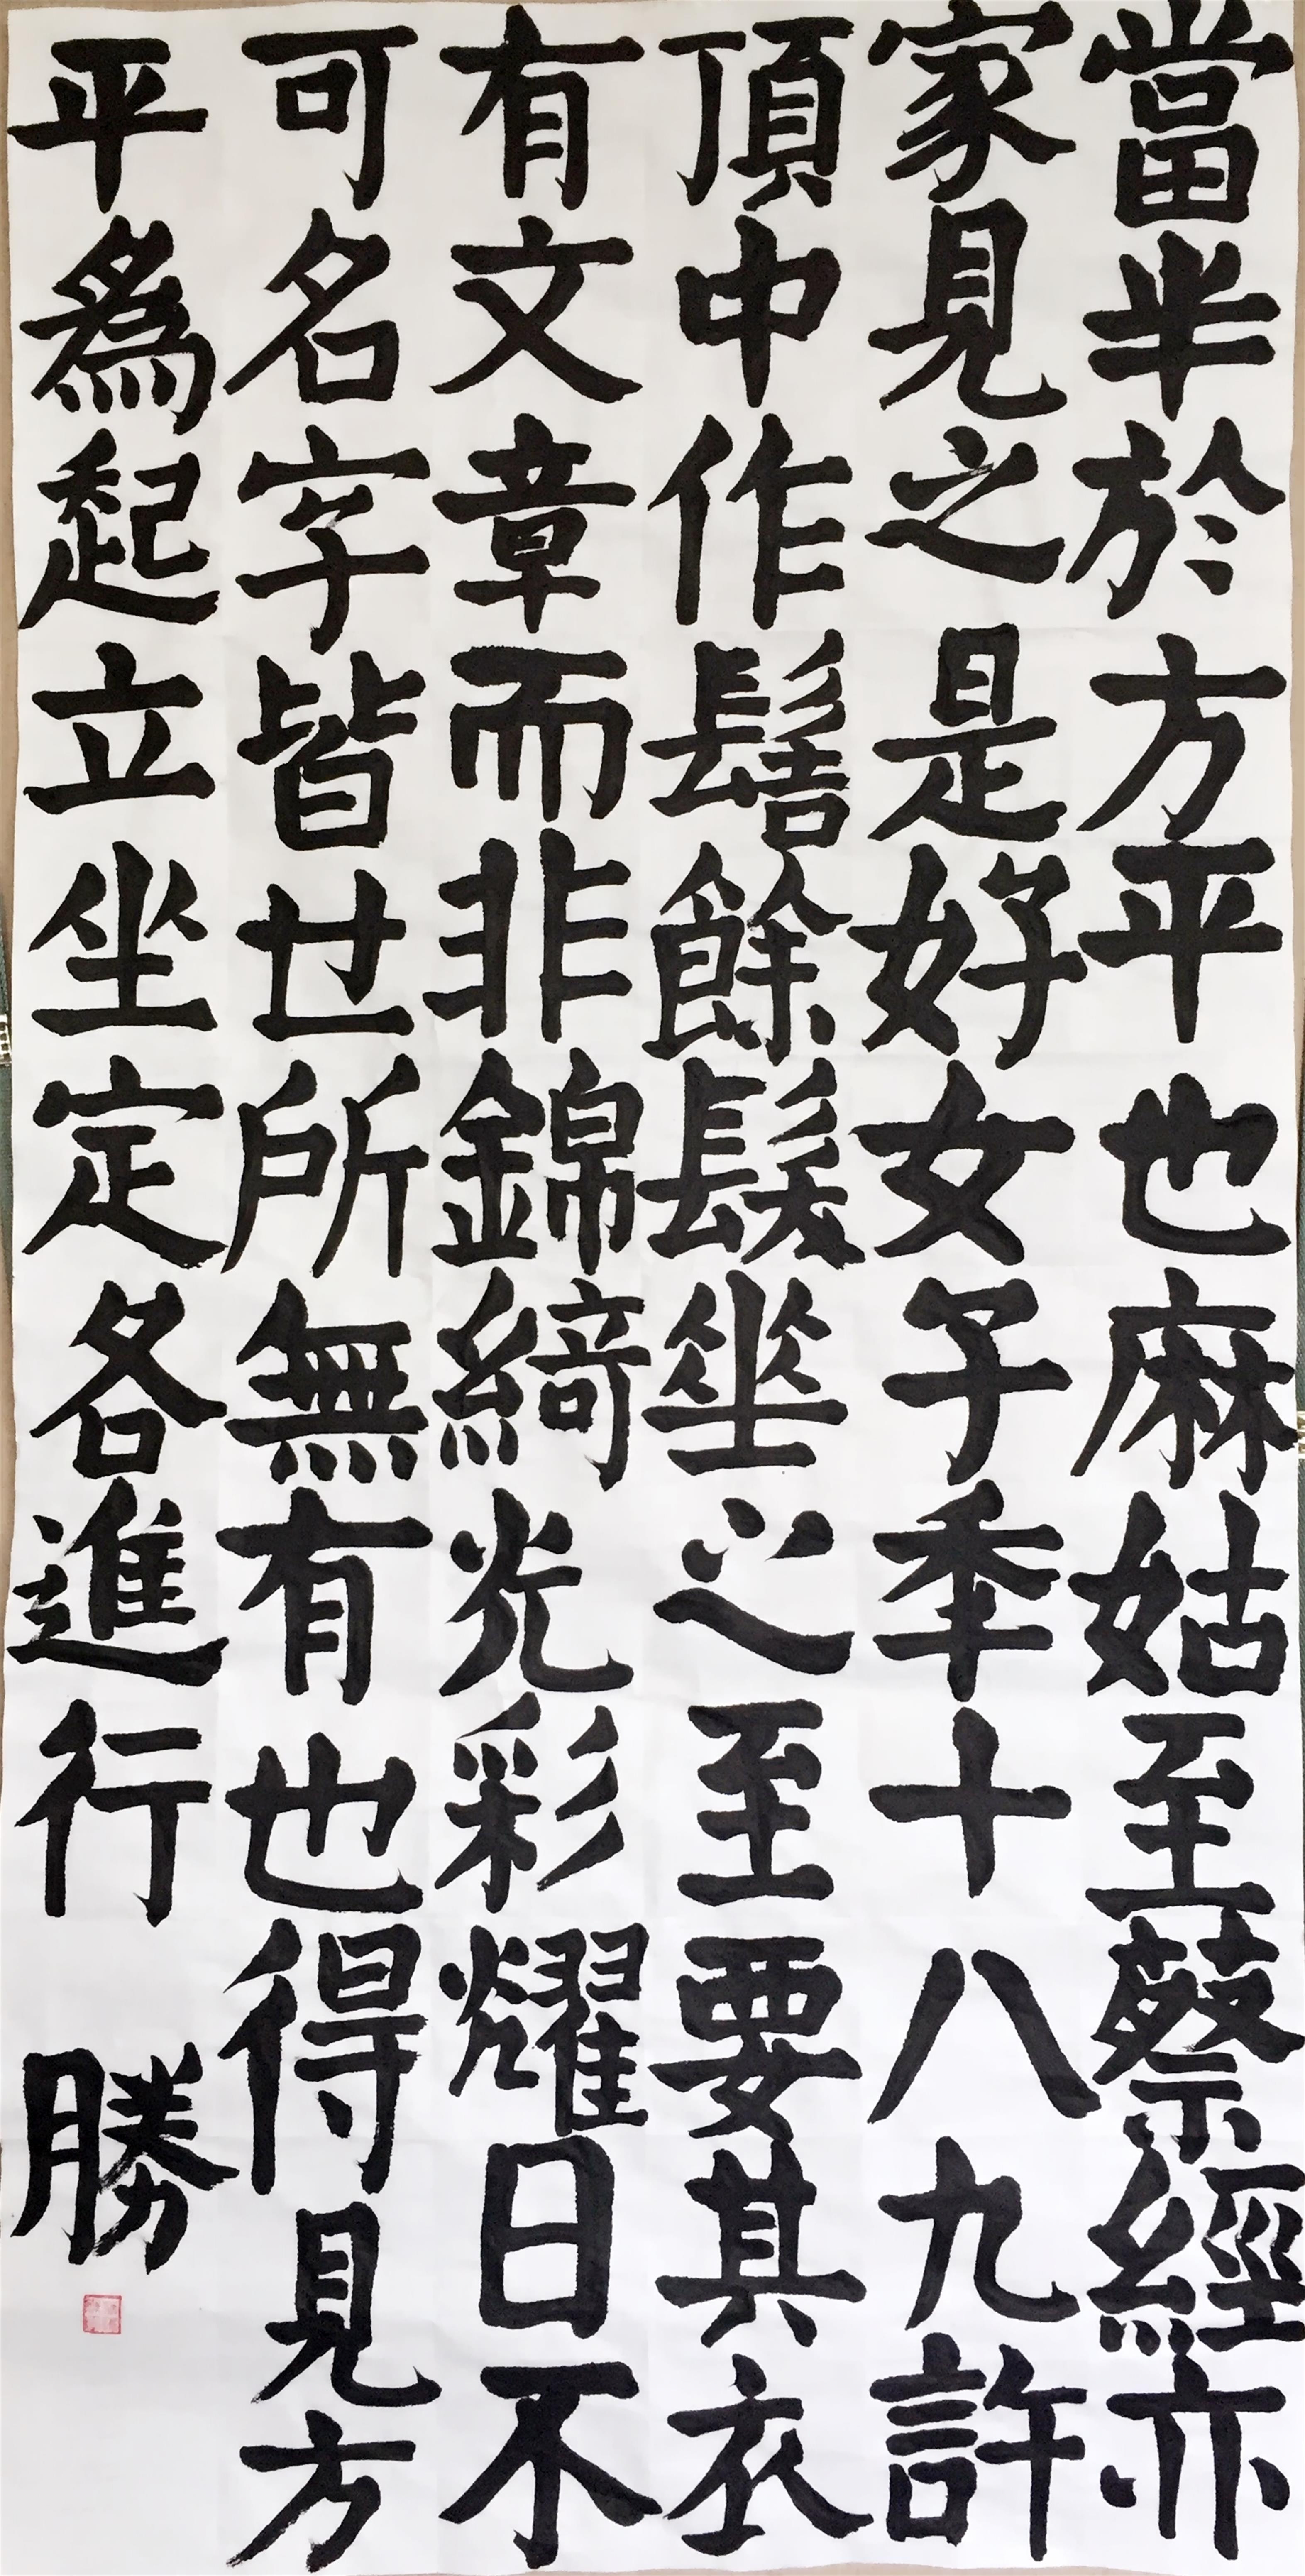 當半於方平也麻姑至蔡經亦
家見之是好女子秊十八九許
頂中作髻餘髮垂之至要其衣
有文章而非錦綺光彩耀日不
可名字皆世所無有也得見方
平爲起立坐定各進行
勝